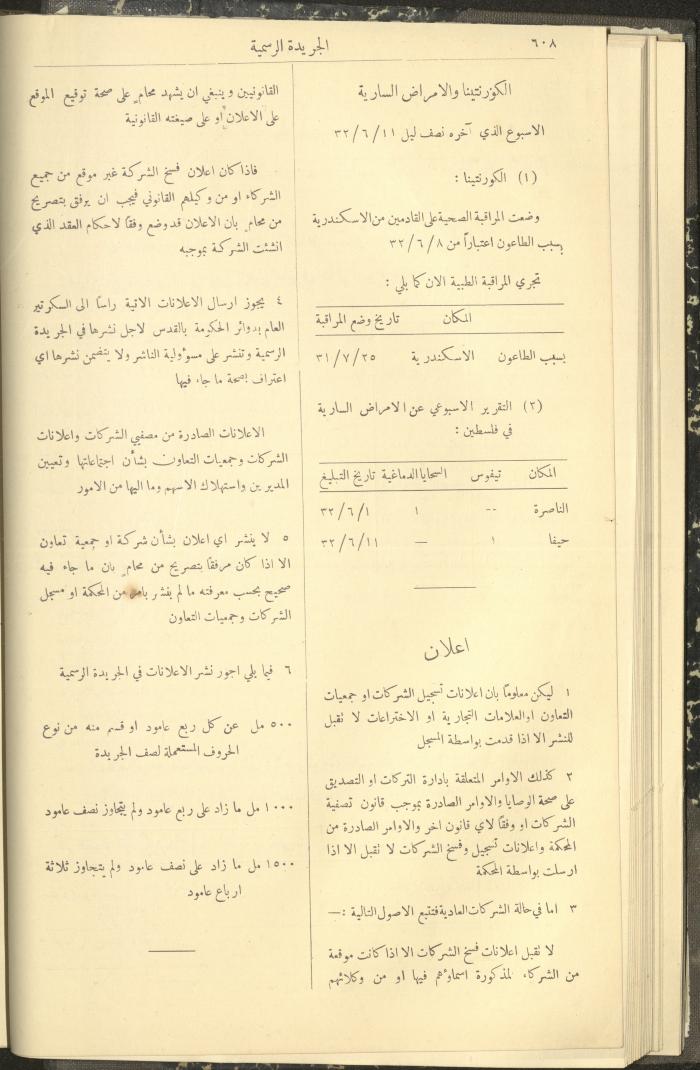 ٦٠٨
الجريدة الرسمية
الكورنتينا والامراض السارية
الاسبوع الذي آخره نصف ليل ٣٢/٦/١١
(١) الكورنتينا :
وضعت المراقبة الصحية على القادمين من الاسكندرية
بسبب الطاعون اعتباراً من ٣٢/٦/٨
تجري المراقبة الطبية الان كما يلي :
المكان تاريخ وضع المراقبة
بسبب الطاعون الاسكندرية ٣١/٧/٢٥
(٢) التقرير الاسبوعي عن الامراض السارية
في فلسطين :
المكان تيفوس السحايا الدماغية تاريخ التبليغ
الناصرة -- ١ ٣٢/٦/١
حيفا ١ — ٣٢/٦/١١
اعلان
١ ليكن معلوماً بان اعلانات تسجيل الشركات او جمعيات
التعاون او العلامات التجارية او الاختراعات لا تقبل
للنشر الا اذا قدمت بواسطة المسجل
٢ كذلك الاوامر المتعلقة بادارة التركات او التصديق
على صحة الوصايا والاوامر الصادرة بموجب قانون تصفية
الشركات او وفقاً لاي قانون اخر والاوامر الصادرة من
المحكمة واعلانات تسجيل وفسخ الشركات لا تقبل الا اذا
ارسلت بواسطة المحكمة
٣ اما في حالة الشركات العادية فتتبع الاصول التالية :—
لا تقبل اعلانات فسخ الشركات الا اذا كانت موقعة
من الشركاء لمذكورة اسماؤهم فيها او من وكلائهم
القانونيين وينبغي ان يشهد محامٍ على صحة توقيع الموقع
على الاعلان او على صيغته القانونية
فاذا كان اعلان فسخ الشركة غير موقع من جميع
الشركاء او من وكيلهم القانوني فيجب ان يرفق بتصريح
من محامٍ بان الاعلان قد وضع وفقاً لاحكام العقد الذي
انشئت الشركة بموجبه
٤ يجوز ارسال الاعلانات الاتية راساً الى السكرتير
العام بدوائر الحكومة بالقدس لاجل نشرها في الجريدة
الرسمية وتنشر على مسؤولية الناشر ولا يتضمن نشرها اي
اعتراف بصحة ما جاء فيها
الاعلانات الصادرة من مصفيي الشركات واعلانات
الشركات وجمعيات التعاون بشأن اجتماعاتها وتعيين
المديرين واستهلاك الاسهم وما اليها من الامور
٥ لا ينشر اي اعلان بشأن شركة او جمعية تعاون
الا اذا كان مرفقاً بتصريح من محامٍ بان ما جاء فيه
صحيح بحسب معرفته ما لم ينشر بامر من المحكمة او مسجل
الشركات وجمعيات التعاون
٦ فيما يلي اجور نشر الاعلانات في الجريدة الرسمية
٥٠٠ مل عن كل ربع عامود او قسم منه من نوع
الحروف المستعملة لصف الجريدة
١٠٠٠ مل ما زاد على ربع عامود ولم يتجاوز نصف عامود
١٥٠٠ مل ما زاد على نصف عامود ولم يتجاوز ثلاثة
ارباع عامود